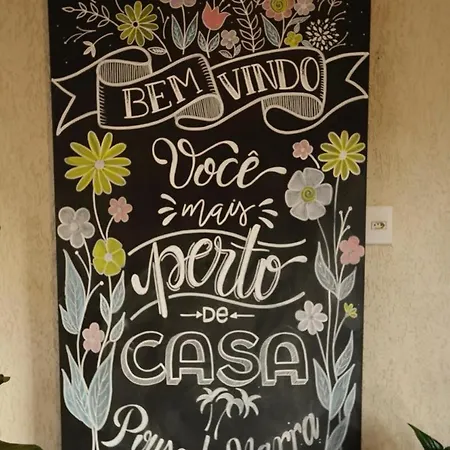 BEM VINDO
Você
mais
perto
DE
CASA